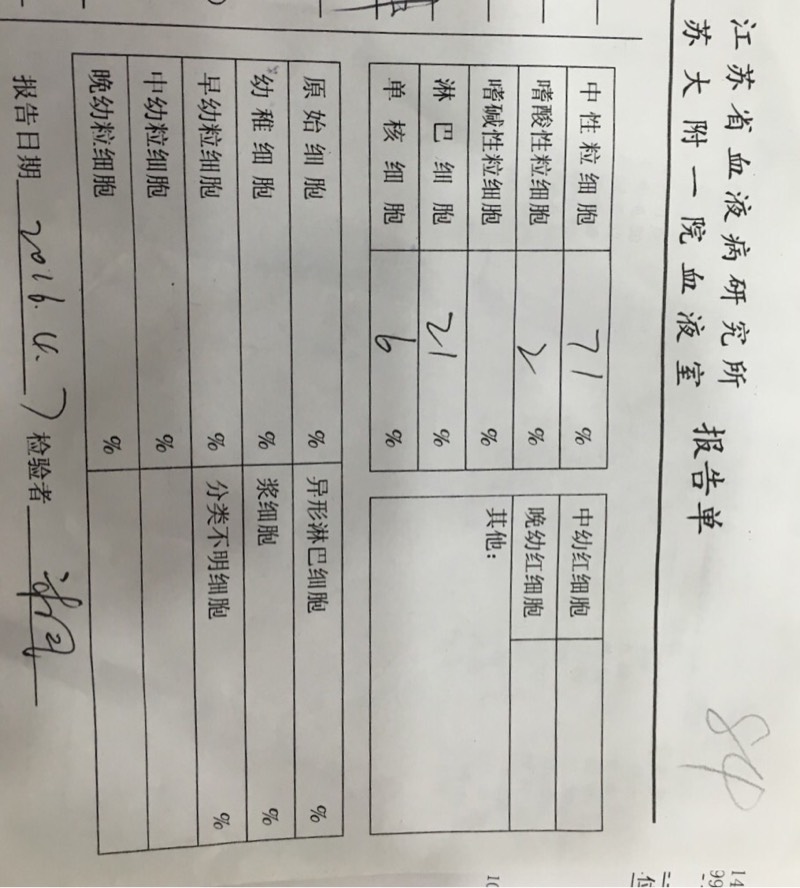 江苏省血液病研究所
苏大附一院血液室 报告单
84
中性粒细胞 71 %
嗜酸性粒细胞 2 %
嗜碱性粒细胞 %
淋巴细胞 21 %
单核细胞 6 %
中幼红细胞
晚幼红细胞
其他:
原始细胞 % 异形淋巴细胞 %
幼稚细胞 % 浆细胞 %
早幼粒细胞 % 分类不明细胞 %
中幼粒细胞 %
晚幼粒细胞 %
报告日期 2016.4.7 检验者